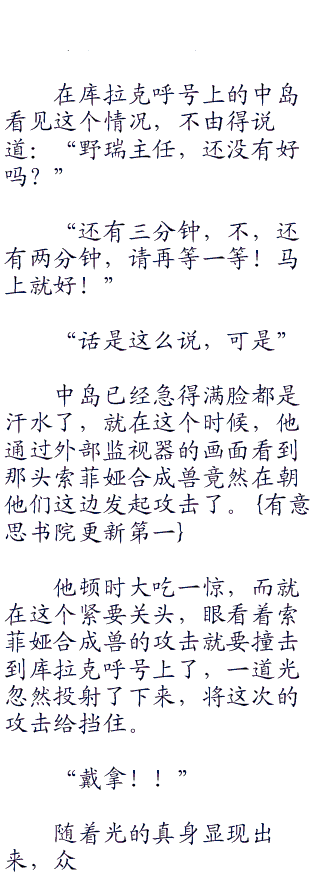 在库拉克呼号上的中岛
看见这个情况，不由得说
道：“野瑞主任，还没有好
吗？”
“还有三分钟，不，还
有两分钟，请再等一等！马
上就好！”
“话是这么说，可是”
中岛已经急得满脸都是
汗水了，就在这个时候，他
通过外部监视器的画面看到
那头索菲娅合成兽竟然在朝
他们这边发起攻击了。{有意
思书院更新第一}
他顿时大吃一惊，而就
在这个紧要关头，眼看着索
菲娅合成兽的攻击就要撞击
到库拉克呼号上了，一道光
忽然投射了下来，将这次的
攻击给挡住。
“戴拿！！”
随着光的真身显现出
来，众